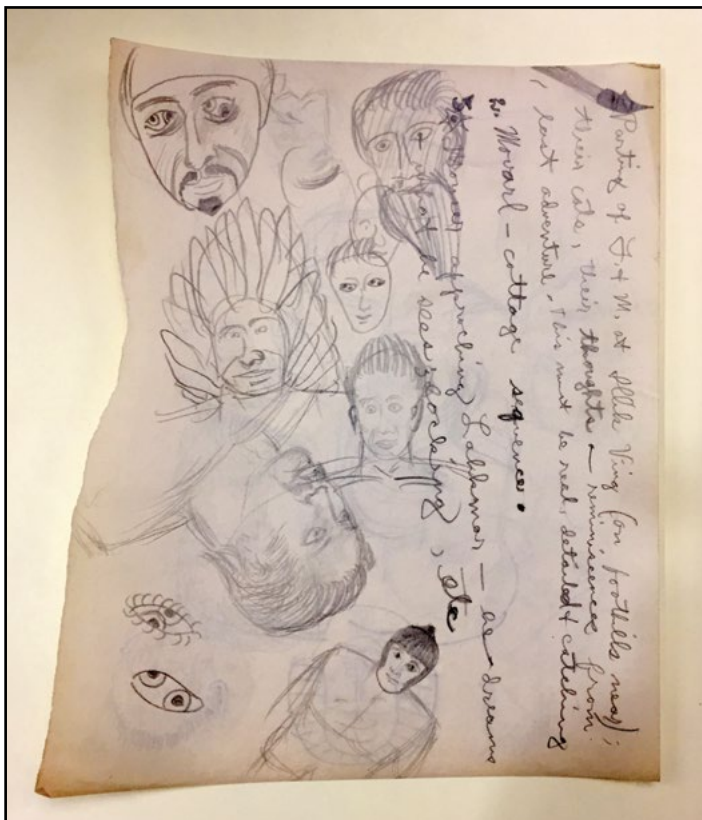 Parting of F. + M. at Illik Ving (on foothills near);
their cats, their thoughts – reminiscences from
last adventure. This must be real, detailed & catching
2. Movarl – cottage sequence.
3. approching Lahkmar – he dreams
+ what he sees; shocking, etc